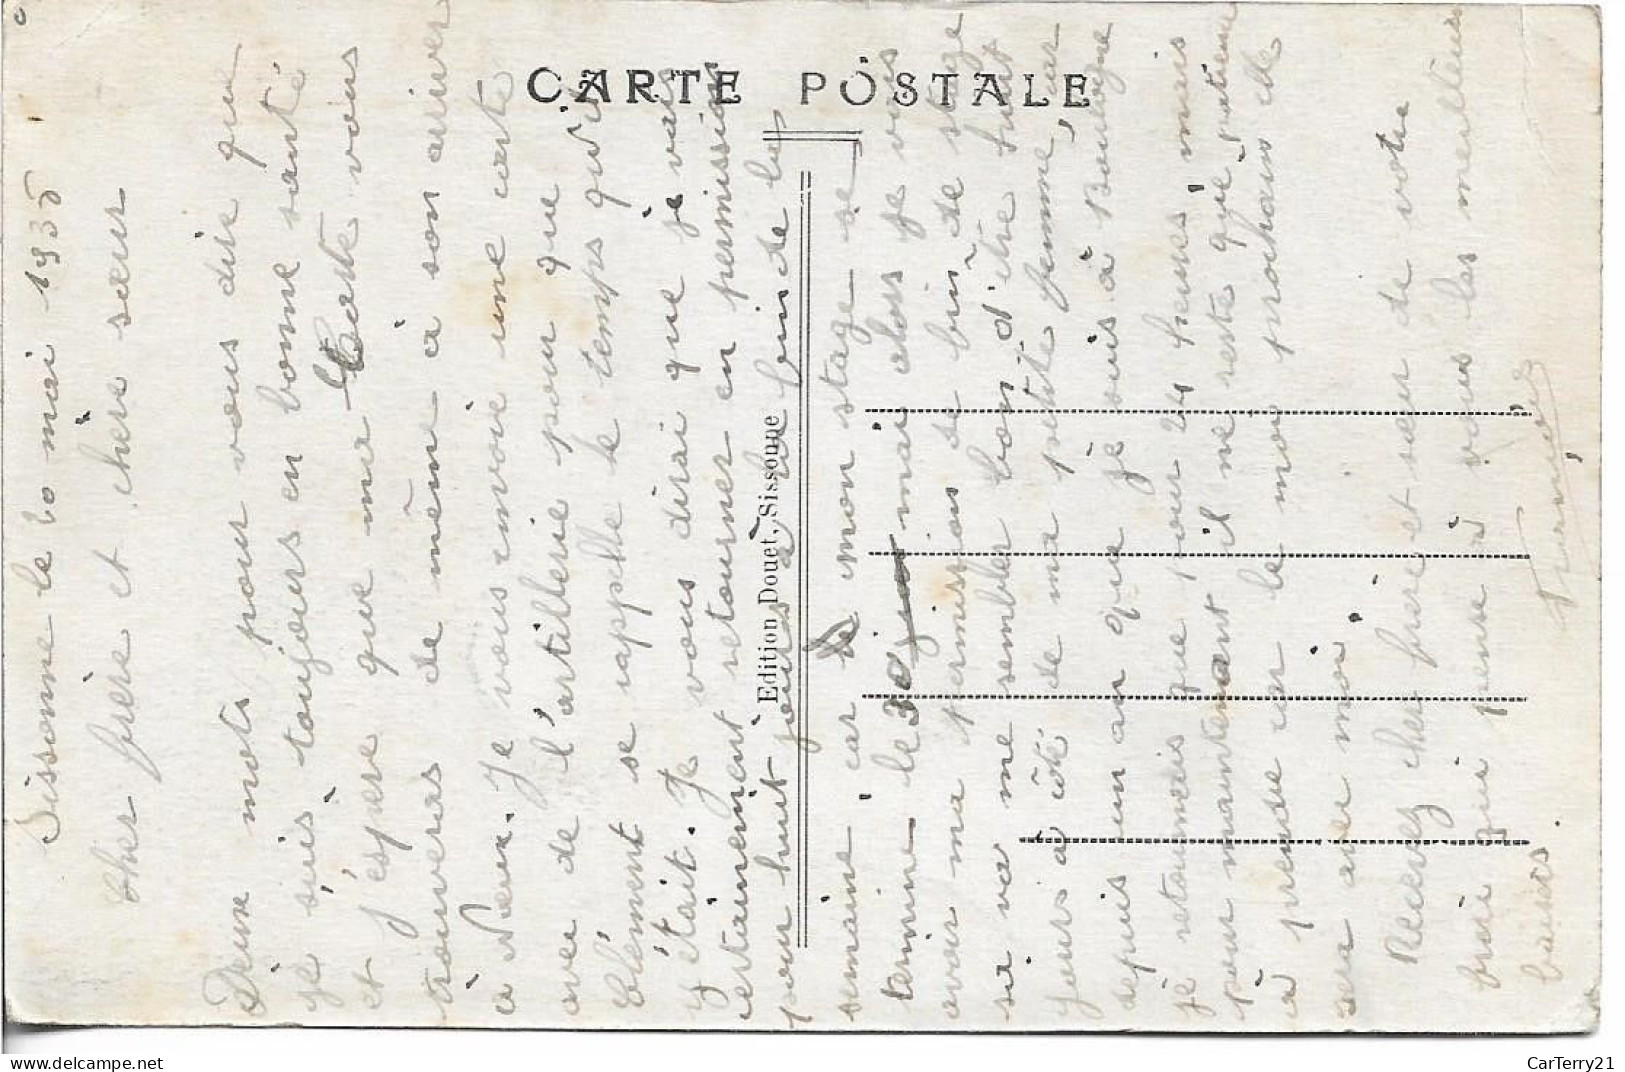 CARTE POSTALE
Edition Douet, Sissonne
Sissonne le 20 mai 1935
Cher frère et chère sœur
Deux mots pour vous dire que
je suis toujours en bonne santé
et j'espère que ma carte vous
trouveras de même à son arriver
à Je vous envoie une carte
avec de l'artillerie pour que
Clément se rappelle le temps qu'il
y était. Je vous dirai que je vais
certainement retourner en permission
pour huit jours à la fin de la
semaine car mon stage se
termine le 30 mai alors je vais
avoir ma permission de fin de stage
sa va me sembler bon d'être huit
jours à côté de ma petite femme, car
depuis un an que je suis à Boulogne
je retournais que pour 24 heures, mais
pour maintenant il ne reste que patience
à prendre car le moi prochain elle
sera avec moi.
Recevez cher frère et sœur de votre
frère qui pense à vous les meilleurs
baisers.